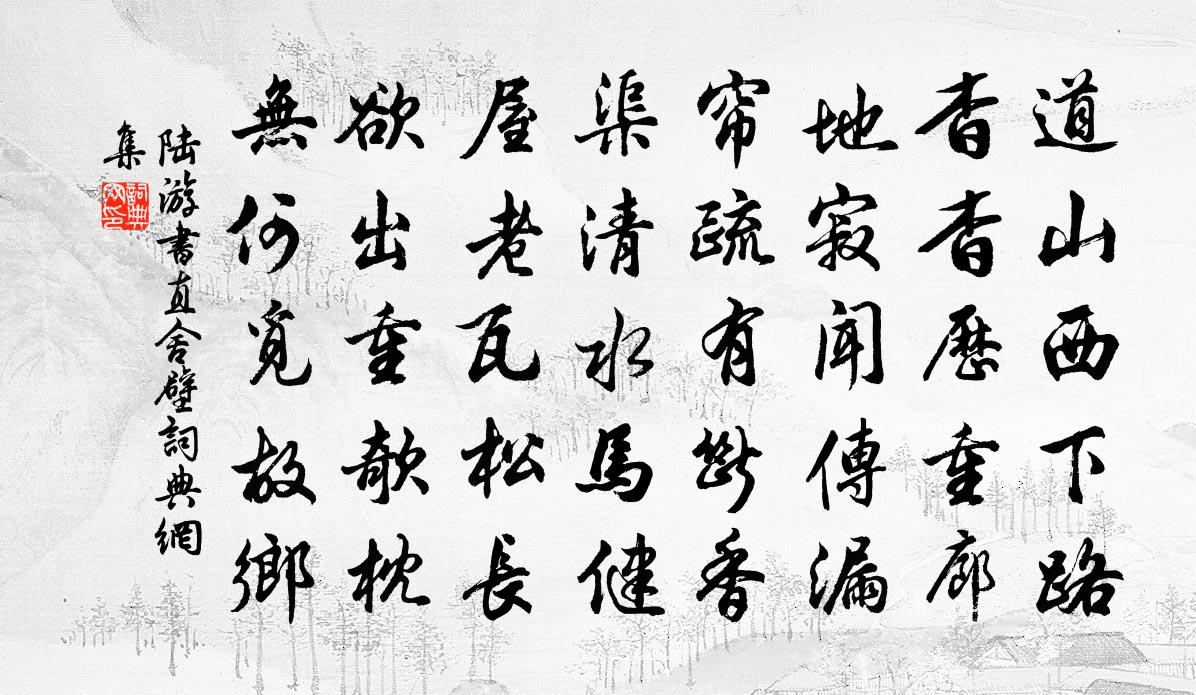 道山西下路
杳杳歷重廊
地寂聞傳漏
帘疏有斷香
渠清水馬健
屋老瓦松長
欲出重欹枕
無何覓故鄉
陸游書直舍壁詞典網
集
詞典網印